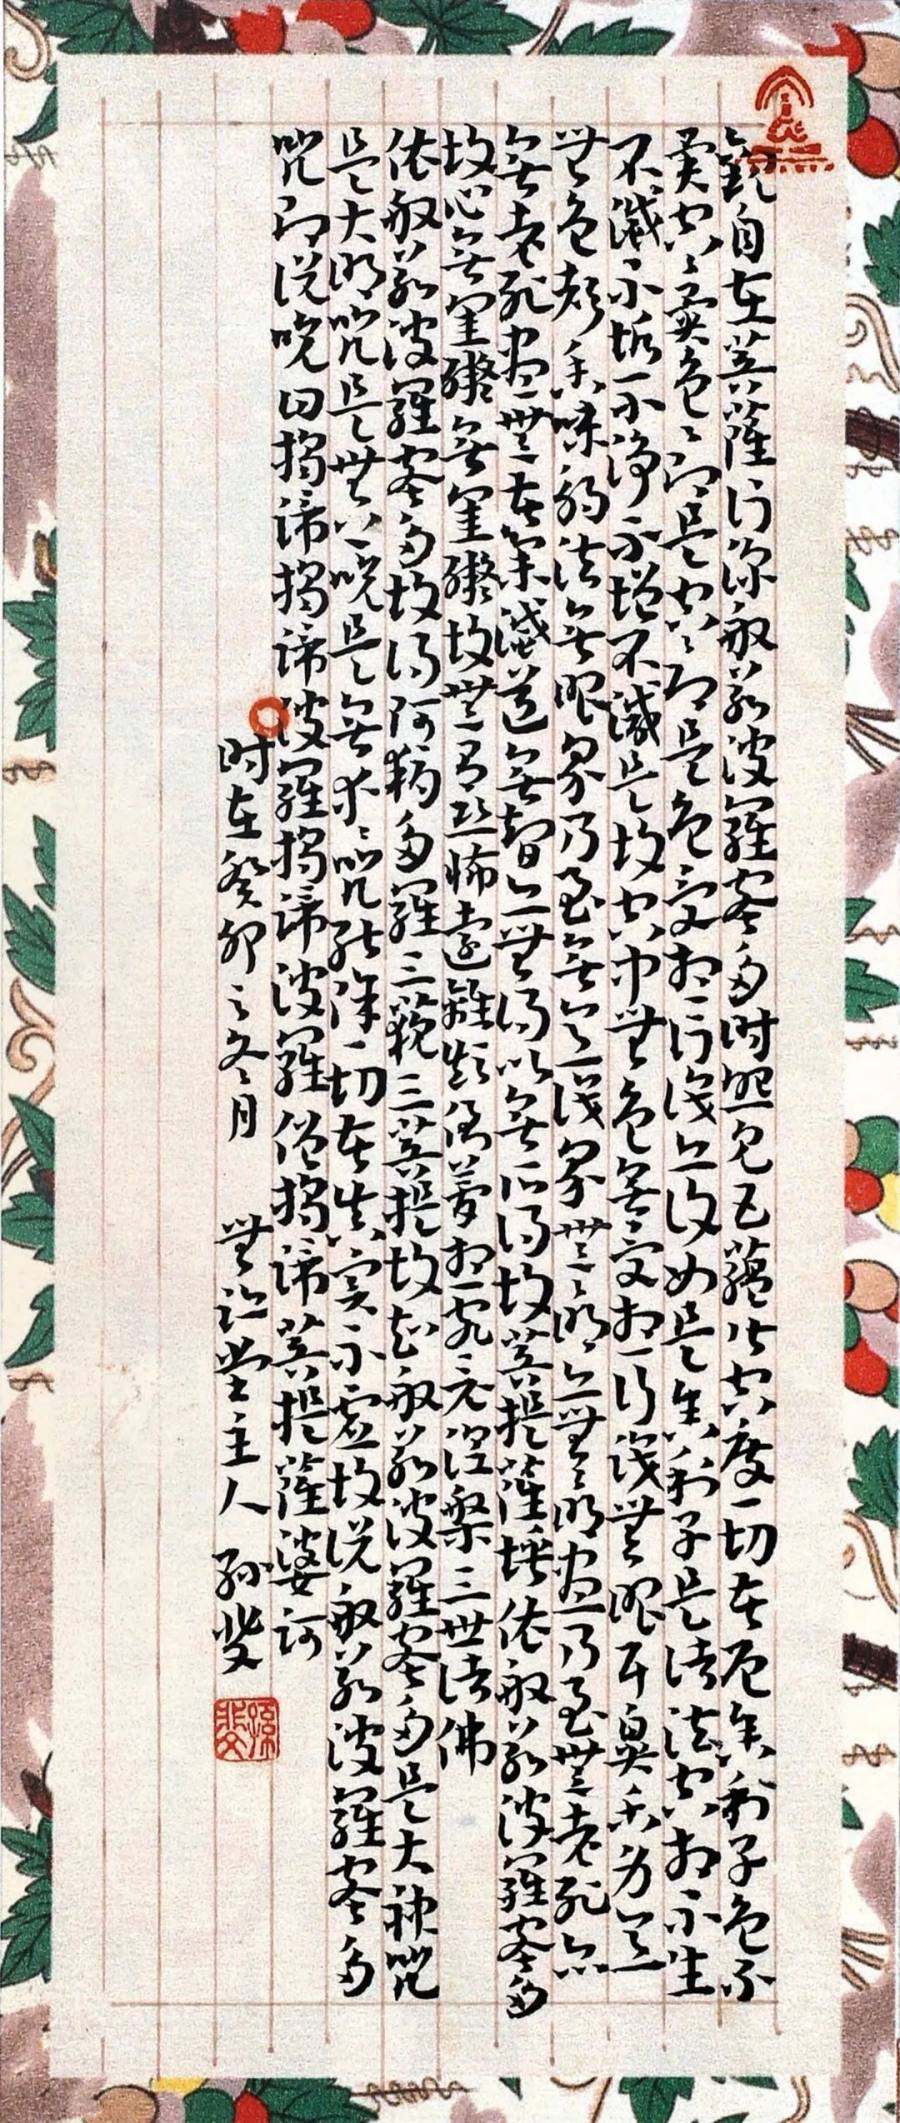 觀自在菩薩行深般若波羅蜜多時照見五蘊皆空度一切苦厄舍利子色不
異空空不異色色即是空空即是色受想行識亦復如是舍利子是諸法空相不生
不滅不垢不淨不增不減是故空中無色無受想行識無眼耳鼻舌身意
無色聲香味觸法無眼界乃至無意識界無無明亦無無明盡乃至無老死亦
無老死盡無苦集滅道無智亦無得以無所得故菩提薩埵依般若波羅蜜多
故心無罣礙無罣礙故無有恐怖遠離顛倒夢想究竟涅槃三世諸佛
依般若波羅蜜多故得阿耨多羅三藐三菩提故知般若波羅蜜多是大神咒
是大明咒是無上咒是無等等咒能除一切苦真實不虛故說般若波羅蜜多
咒即說咒曰揭諦揭諦波羅揭諦波羅僧揭諦菩提薩婆訶
时在癸卯之冬月 無訟堂主人 孫斐
孫斐